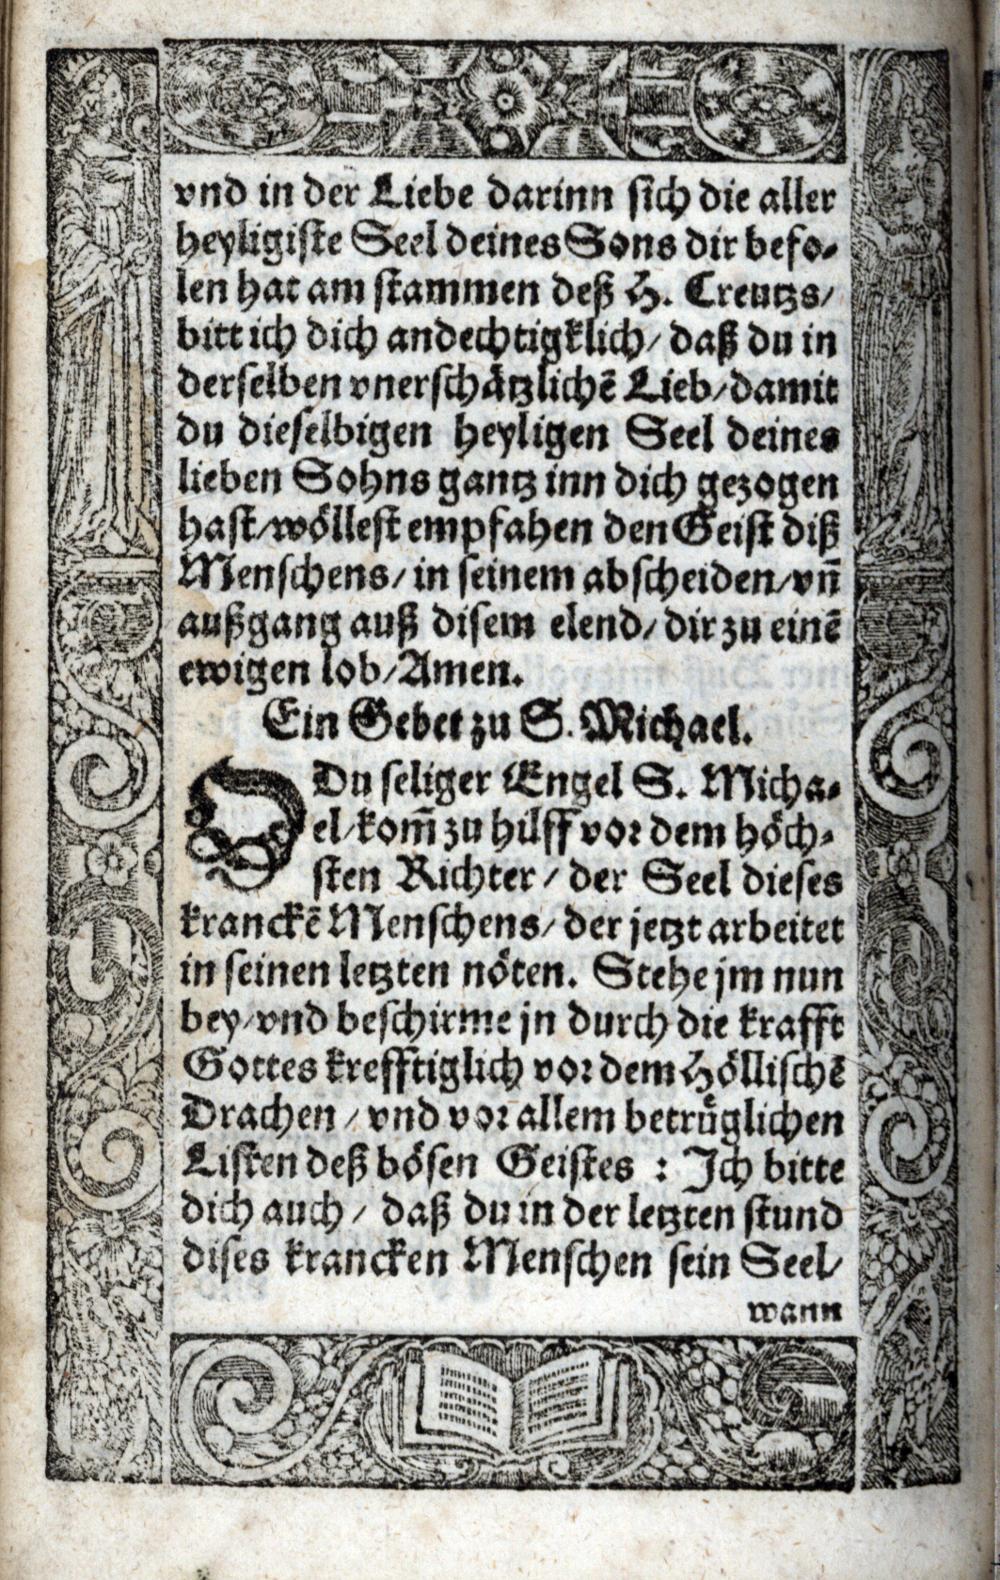 vnd in der Liebe darinn sich die aller
heyligiste Seel deines Sons dir befo-
len hat am stammen deß H. Creutzs/
bitt ich dich andechtigklich/ daß du in
derselben vnerschätzlichẽ Lieb/damit
du dieselbigen heyligen Seel deines
lieben Sohns gantz inn dich gezogen
hast/wöllest empfahen den Geist diß
Menschens/ in seinem abscheiden/vñ
außgang auß disem elend/ dir zu einẽ
ewigen lob/Amen.
Ein Gebet zu S. Michael.
O Du seliger Engel S. Micha-
el/kom̃ zu hilff vor dem höch-
sten Richter/ der Seel dieses
kranckẽ Menschens/ der jetzt arbeitet
in seinen letzten nöten. Stehe jm nun
bey/vnd beschirme jn durch die krafft
Gottes krefftiglich vor dem Höllischẽ
Drachen/ vnd vor allem betrüglichen
Listen deß bösen Geistes : Ich bitte
dich auch/ daß du in der letzten stund
dises krancken Menschen sein Seel/
wann